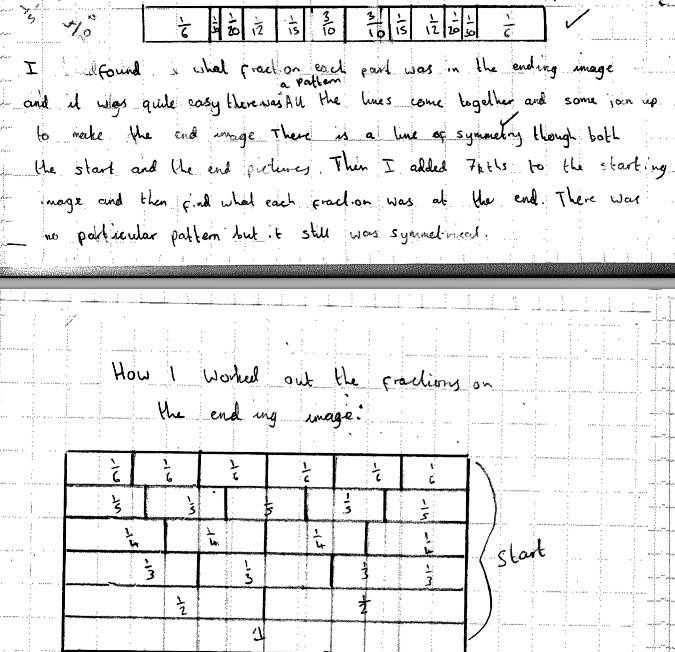 1/6 1/30 1/20 1/12 1/15 3/10 3/10 1/15 1/12 1/20 1/30 1/6 ✓
I found what fraction each part was in the ending image
a pattern
and it was quite easy there was All the lines come together and some join up
to make the end image There is a line of symmetry though both
the start and the end pictures. Then I added 7ths to the starting
image and then find what each fraction was at the end. There was
no particular pattern but it still was symmetrical.
How I worked out the fractions on
the ending image:
1/6 1/6 1/6 1/6 1/6 1/6
1/5 1/5 1/5 1/5 1/5
1/4 1/4 1/4 1/4
1/3 1/3 1/3 1/3
Start
1/2 1/2
1